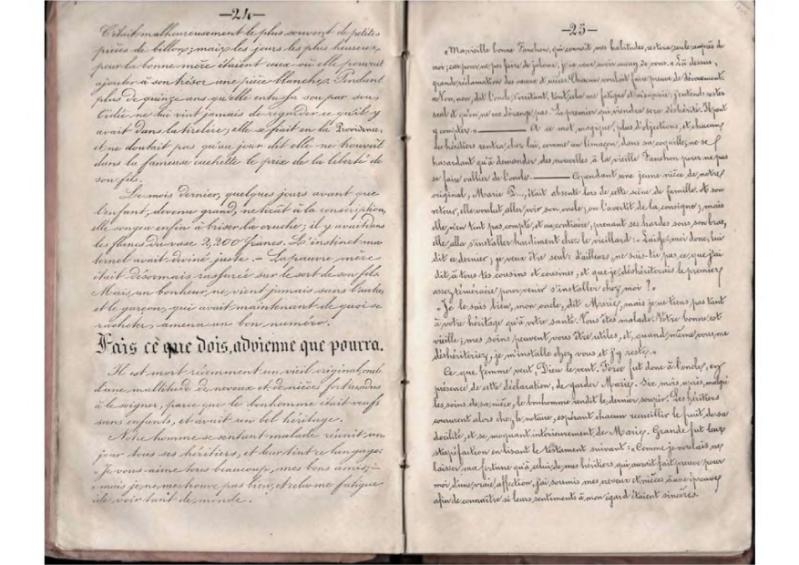 —24—
C'était malheureusement le plus souvent de petites
pièces de billon; mais les jours les plus heureux
pour la bonne mère étaient ceux où elle pouvait
ajouter à son trésor une pièce blanche. Pendant
plus de quinze ans qu'elle entassa sou par sou
l'idée ne lui vint jamais de regarder ce qu'il y
avait dans la tirelire; elle se fiait en la Providence,
et ne doutait pas qu'un jour dit elle ne trouvât
dans la fameuse cachette le prix de la liberté de
son fils.
Le mois dernier, quelques jours avant que
l'enfant, devenu grand, ne tirât à la conscription,
elle songea enfin à briser la cruche; il y avait dans
les flancs du vase 2,200 francs. L'instinct ma-
ternel avait deviné juste. — La pauvre mère
était désormais rassurée sur le sort de son fils
Mais un bonheur ne vient jamais sans l'autre,
et le garçon, qui avait maintenant de quoi se
racheter, amena un bon numéro.
Fais ce que dois, advienne que pourra.
Il est mort récemment un vieil original, oncle
d'une multitude de neveux et de nièces fort assidus
à le soigner, parce que le bonhomme était veuf
sans enfants, et avait un bel héritage.
Notre homme se sentant malade réunit un
jour tous ses héritiers, et leur tint ce langage:
« Je vous aime tous beaucoup, mes bons amis;
« mais je ne me trouve pas bien, et cela me fatigue
« de voir tant de monde.
—25—
« Ma vieille bonne Fanchon, qui connaît mes habitudes, restera seule auprès de
moi; car pour ne pas faire de jaloux, je ne veux voir aucun de vous. » Là dessus,
grande réclamation des neveux et nièces. Chacun voulait faire preuve de dévouement.
« Non, non, dit l'oncle s'irritant, tout cela me fatigue et m'aigrit; j'entends rester
seul et qu'on ne me dérange pas. Le premier qui viendra sera déshérité. Il faut
y consentir. » — À ce mot magique, plus d'objections, et chacun
des héritiers rentra chez lui, comme un limaçon, dans sa coquille, ne se
hasardant qu'à demander des nouvelles à la vieille Fanchon pour ne pas
se faire oublier de l'oncle. — Cependant une jeune nièce de notre
original, Marie P., était absente lors de cette scène de famille. À son
retour, elle voulut aller voir son oncle; on l'avertit de la consigne; mais
elle n'en tint pas compte, et au contraire, prenant ses hardes sous son bras,
elle alla s'installer hardiment chez le vieillard: « Laisse-moi donc, lui
dit ce dernier; je veux être seul: d'ailleurs, ne sais-tu pas ce que j'ai
dit à tous tes cousins et cousines, et que je déshériterais le premier
assez téméraire pour venir s'installer chez moi? »
« Je le sais bien, mon oncle, dit Marie, mais je ne tiens pas tant
à votre héritage qu'à votre santé. Vous êtes malade. Votre bonne est
vieille; mes soins peuvent vous être utiles, et, quand même vous me
déshériteriez, je m'installe chez vous et j'y reste. »
Ce que femme veut Dieu le veut. Force fut donc à l'oncle, en
présence de cette déclaration, de garder Marie. Six mois après, malgré
les soins de sa nièce, le bonhomme rendit le dernier soupir. Les héritiers
coururent alors chez le notaire, espérant chacun recueillir le fruit de sa
docilité, et se moquant intérieurement de Marie. Grande fut leur
stupéfaction en lisant le testament suivant: « Comme je voulais ne
laisser ma fortune qu'à celui de mes héritiers qui aurait fait preuve pour
moi d'une vraie affection, j'ai soumis mes neveux et nièces à une épreuve
afin de connaître si leurs sentiments à mon égard étaient sincères.